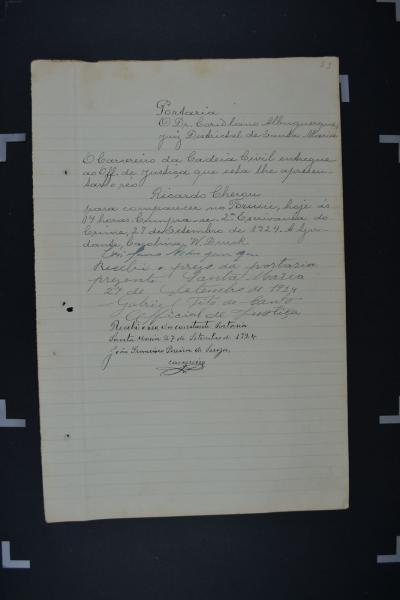 53
Portaria
O Dr. Coriolano Albuquerque,
juiz Districtal de Santa Maria
O Carcereiro da Cadeia Civil entregue
ao Off. de justiça que esta lhe apresen-
tar o réo
Ricardo
para comparecer no Forum, hoje ás
14 horas. Cumpra-se. 2º Escrivania do
Crime, 27 de Setembro de 1924. A Ajudante,
W. Druck.
Recebi o preso da portaria
presente Santa Maria
27 de Setembro de 1924
Gabriel Tito do Canto
Official de Justiça
Recebi o réo da constante Portaria
Santa Maria 27 de Setembro de 1924
João Francisco Pereira de Souza,
carcereiro